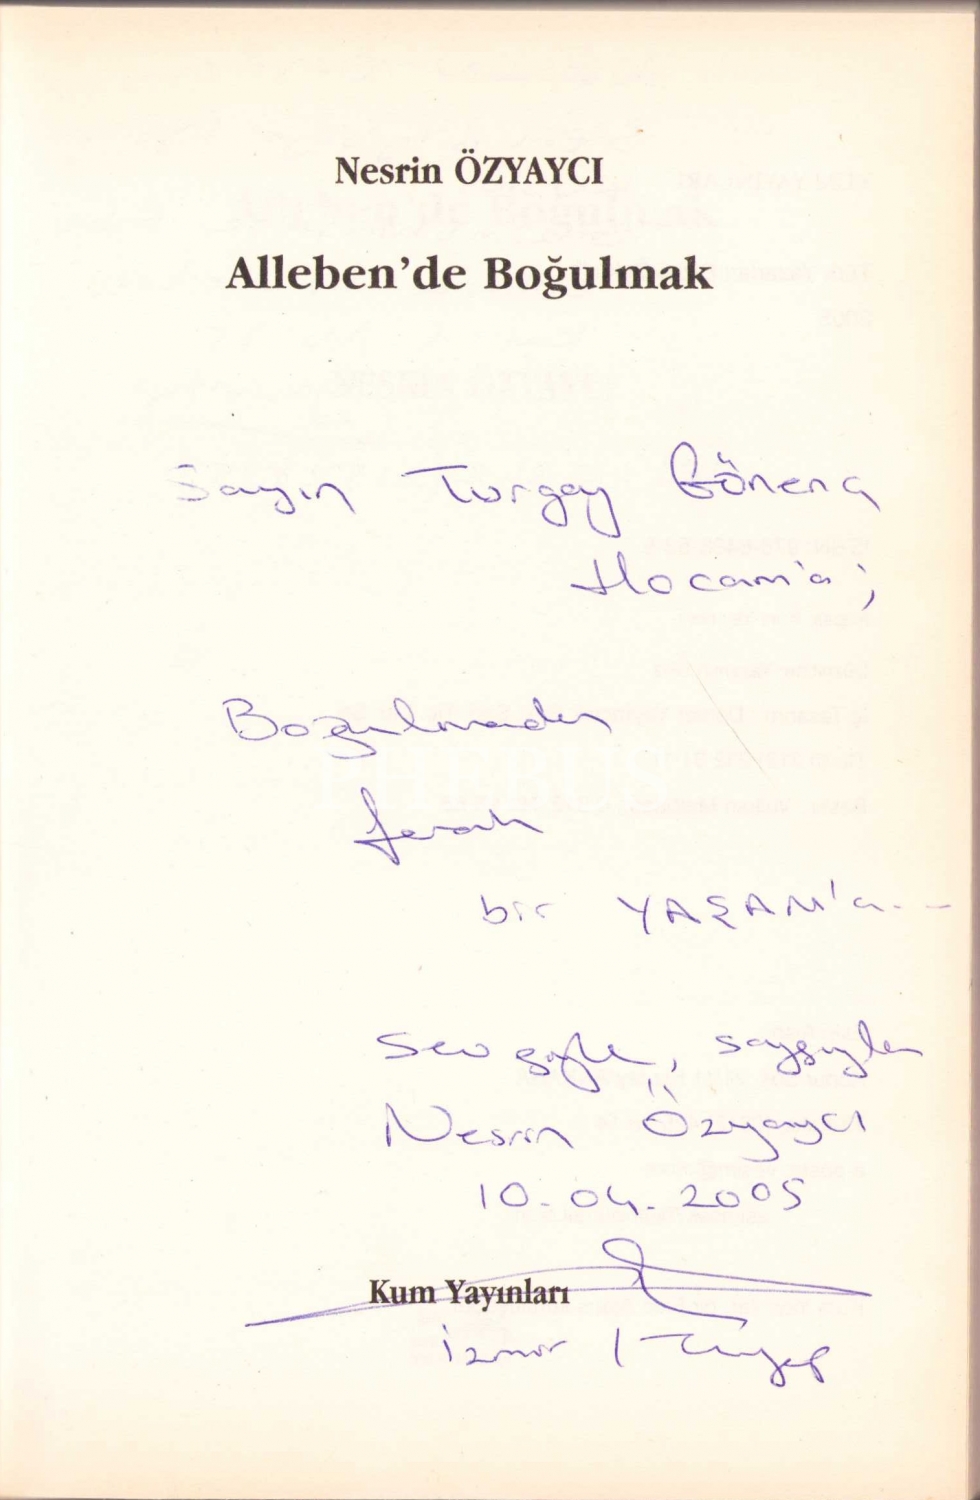 Nesrin ÖZYAYCI
Alleben'de Boğulmak
Sayın Turgay Gönenç
Hocam'a;
Boğulmadan
ferah
bir YAŞAM'a...
Sevgiyle, saygıyla
Nesrin Özyaycı
10.04.2005
Kum Yayınları
İzmir